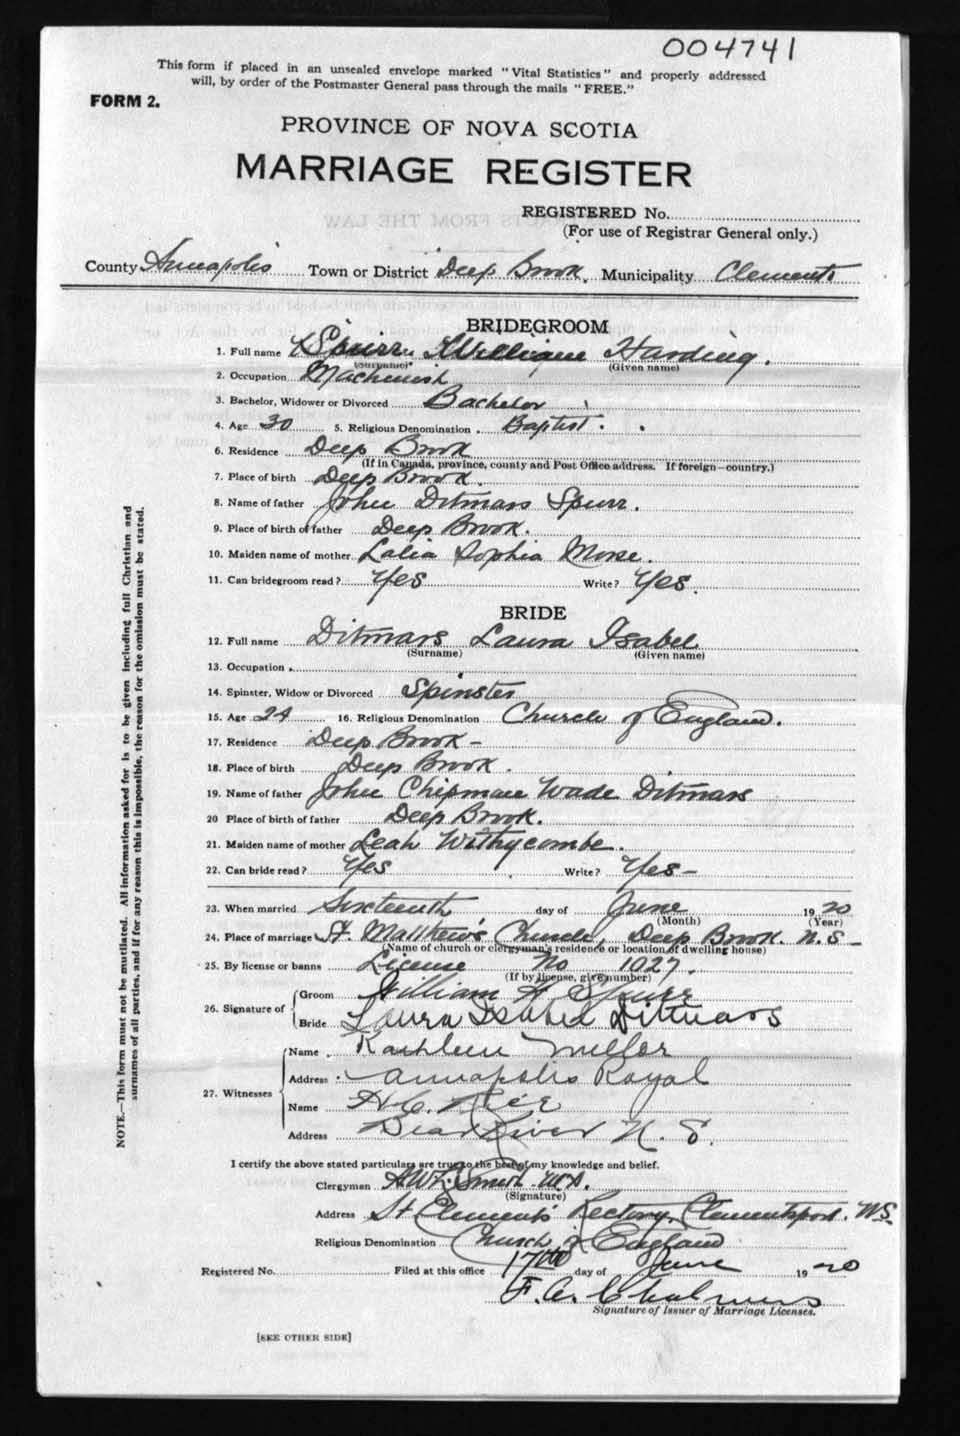 004741
This form if placed in an unsealed envelope marked "Vital Statistics" and properly addressed
will, by order of the Postmaster General pass through the mails "FREE."
FORM 2.
PROVINCE OF NOVA SCOTIA
MARRIAGE REGISTER
REGISTERED No.
(For use of Registrar General only.)
County Annapolis Town or District Deep Brook. Municipality Clements
BRIDEGROOM
1. Full name Spurr. William Harding.
(Surname) (Given name)
2. Occupation Machinist
3. Bachelor, Widower or Divorced Bachelor
4. Age 30 5. Religious Denomination Baptist.
6. Residence Deep Brook
(If in Canada, province, county and Post Office address. If foreign—country.)
7. Place of birth Deep Brook.
8. Name of father John Ditmars Spurr.
9. Place of birth of father Deep Brook.
10. Maiden name of mother Lalia Sophia Morse.
11. Can bridegroom read? Yes Write? Yes.
BRIDE
12. Full name Ditmars Laura Isabel
(Surname) (Given name)
13. Occupation
14. Spinster, Widow or Divorced Spinster
15. Age 24 16. Religious Denomination Church of England.
17. Residence Deep Brook -
18. Place of birth Deep Brook.
19. Name of father John Chipman Wade Ditmars
20 Place of birth of father Deep Brook.
21. Maiden name of mother Leah Withycombe.
22. Can bride read? Yes Write? Yes -
23. When married Sixteenth day of June 1920
(Month) (Year)
24. Place of marriage St. Matthew's Church, Deep Brook. N. S -
(Name of church or clergyman's residence or location of dwelling house)
25. By license or banns License No 1027.
(If by license, give number)
26. Signature of Groom William H Spurr
Bride Laura Isabel Ditmars
27. Witnesses Name Kathleen Miller
Address Annapolis Royal
Name H. C.
Address Bear River N. S.
I certify the above stated particulars are true to the best of my knowledge and belief.
Clergyman Smith M.A.
(Signature)
Address St Clement's Rectory, Clementsport. NS
Religious Denomination Church of England
Registered No. Filed at this office 17th day of June 1920
F. C. Chalmers
Signature of Issuer of Marriage Licenses.
[SEE OTHER SIDE]
NOTE.—This form must not be mutilated. All information asked for is to be given including full Christian and
surnames of all parties, and if for any reason this is impossible, the reason for the omission must be stated.